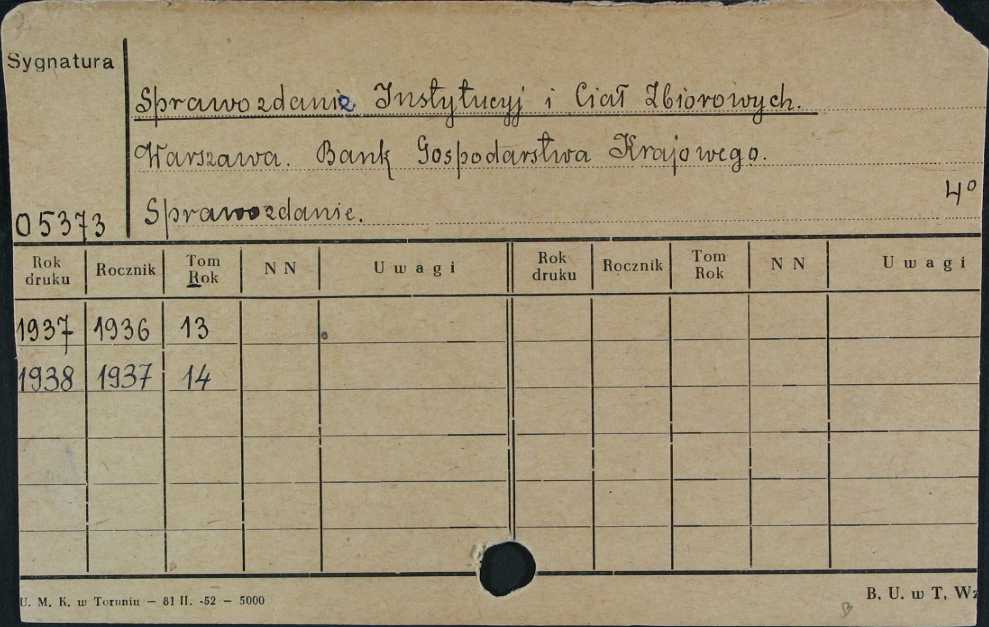 Sygnatura
Sprawozdanie Instytucyj i Ciał Zbiorowych.
Warszawa. Bank Gospodarstwa Krajowego.
05373 Sprawozdanie. 4º
Rok druku Rocznik Tom Rok N N Uwagi Rok druku Rocznik Tom Rok N N Uwagi
1937 1936 13
1938 1937 14
U. M. K. w Toruniu — 81 II. -52 — 5000
B. U. w T. Wz